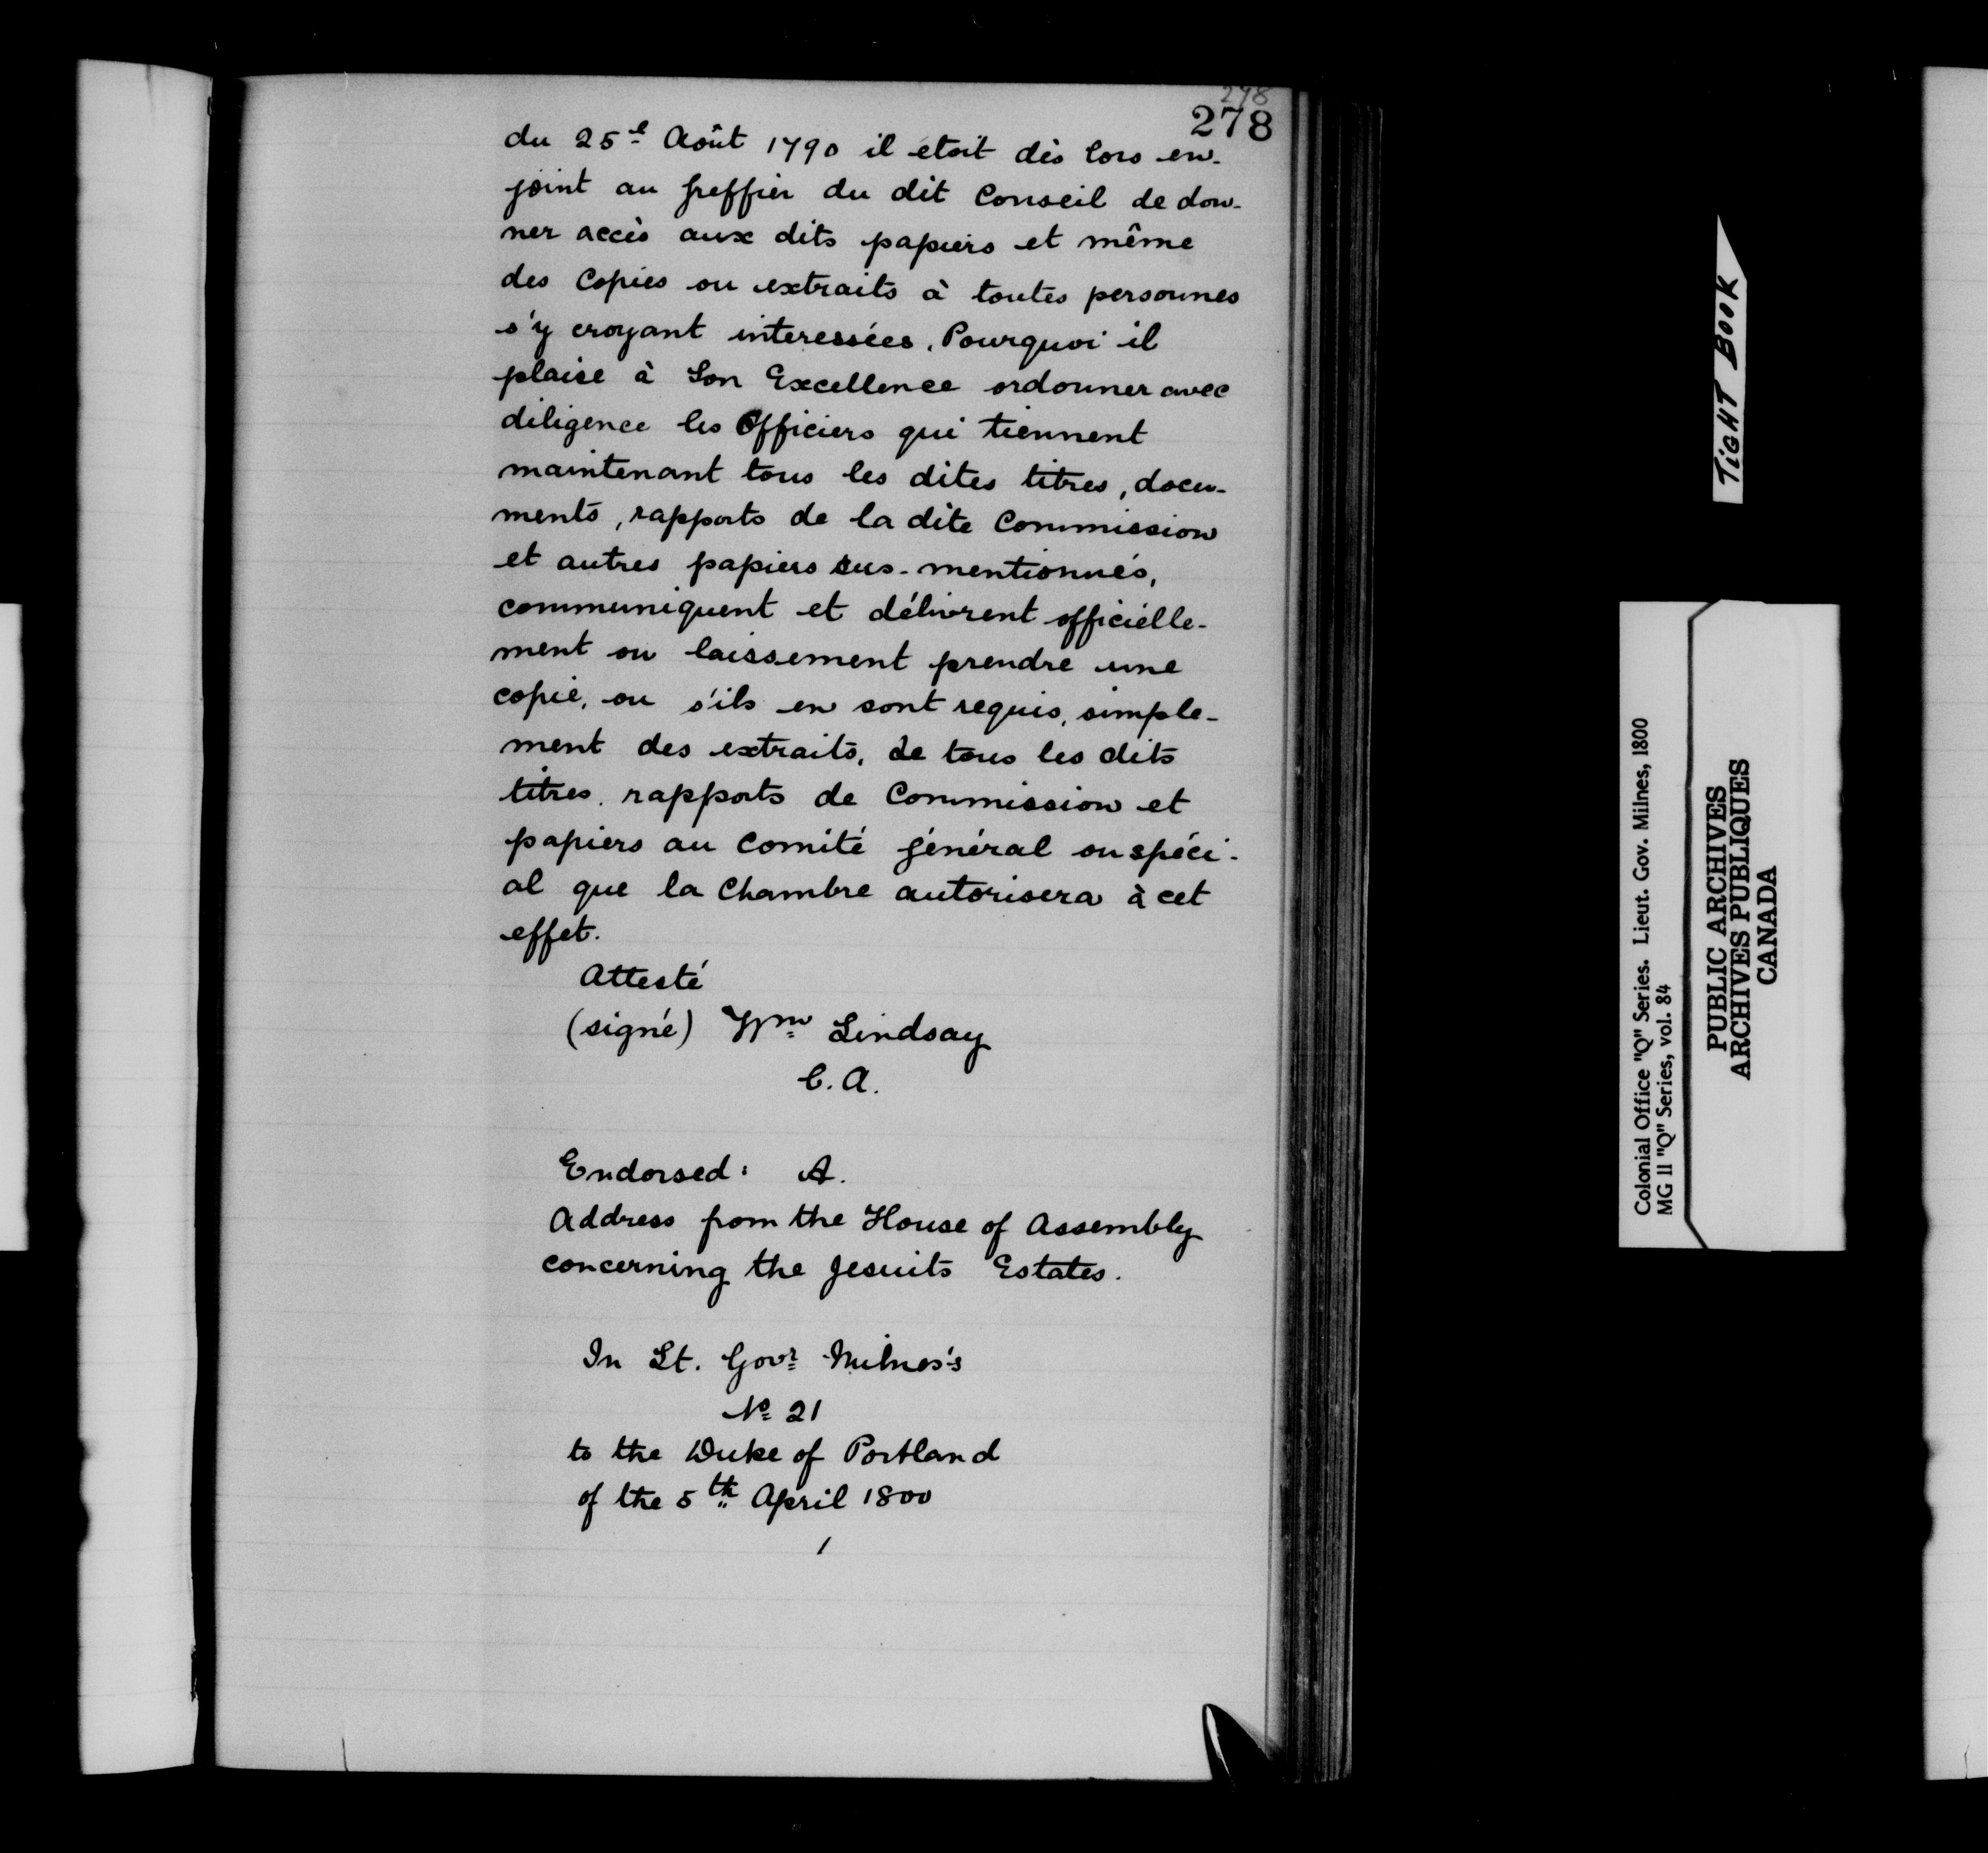 278
278
du 25e Août 1790 il etoit dès lors en-
joint au greffier du dit Conseil de don-
ner accès aux dits papiers et même
des Copies ou extraits à toutes personnes
s'y croyant interessées. Pourquoi il
plaise à Son Excellence ordonner avec
diligence les Officiers qui tiennent
maintenant tous les dites titres, docu-
ments, rapports de la dite Commission
et autres papiers sus-mentionnés,
communiquent et délivrent officielle-
ment ou laissement prendre une
copie, ou s'ils en sont requis, simple-
ment des extraits, de tous les dits
titres, rapports de Commission et
papiers au Comité général ou spéci-
al que la Chambre autorisera à cet
effet.
Attesté
(signé) Wm Lindsay
C. A.
Endorsed: A.
Address from the House of Assembly
concerning the Jesuits Estates.
In Lt. Govr Milnes's
No 21
to the Duke of Portland
of the 5th April 1800
TIGHT BOOK
Colonial Office "Q" Series. Lieut. Gov. Milnes, 1800
MG 11 "Q" Series, vol. 84
PUBLIC ARCHIVES
ARCHIVES PUBLIQUES
CANADA